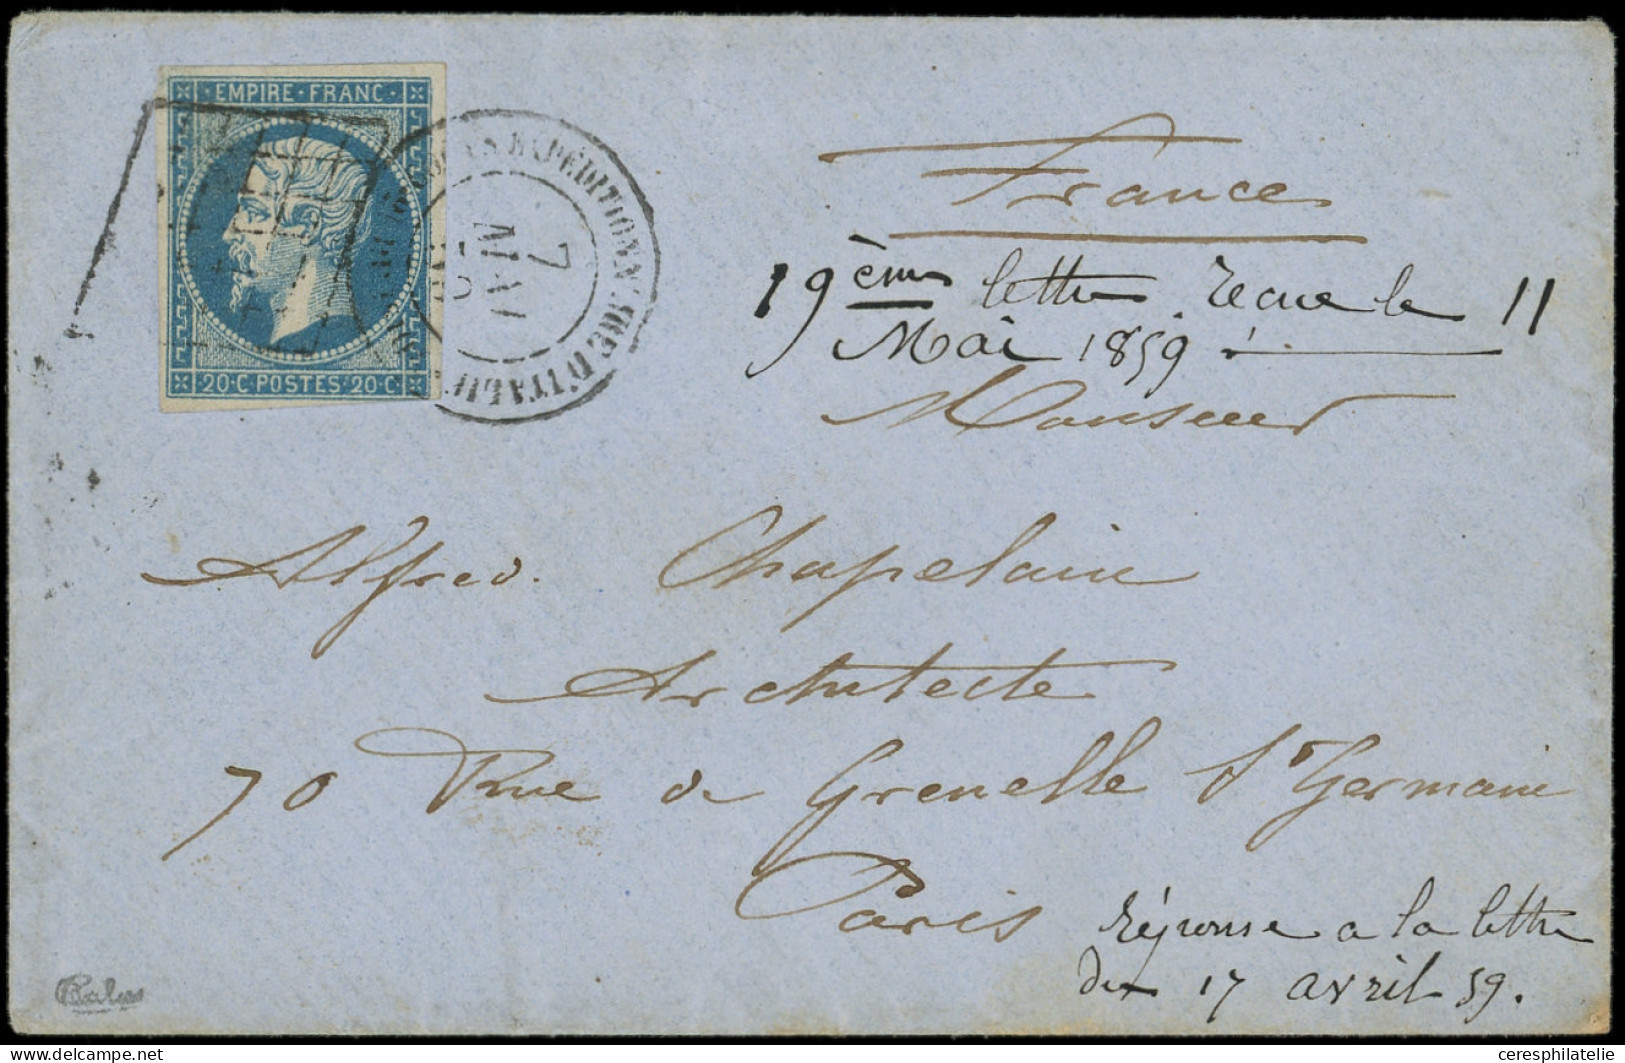 EMPIRE · FRANC ·
20 · C · POSTES · 20 · C
EXPÉDITIONNRE D'ITALIE
7
MAI
France
19ème lettre recue le 11
Mai 1859
Monsieur
Alfred Chapelain
Architecte
70 Rue de Grenelle St Germain
Paris
réponse a la lettre
du 17 avril 59.
delcampe.net
ceresphilatelie